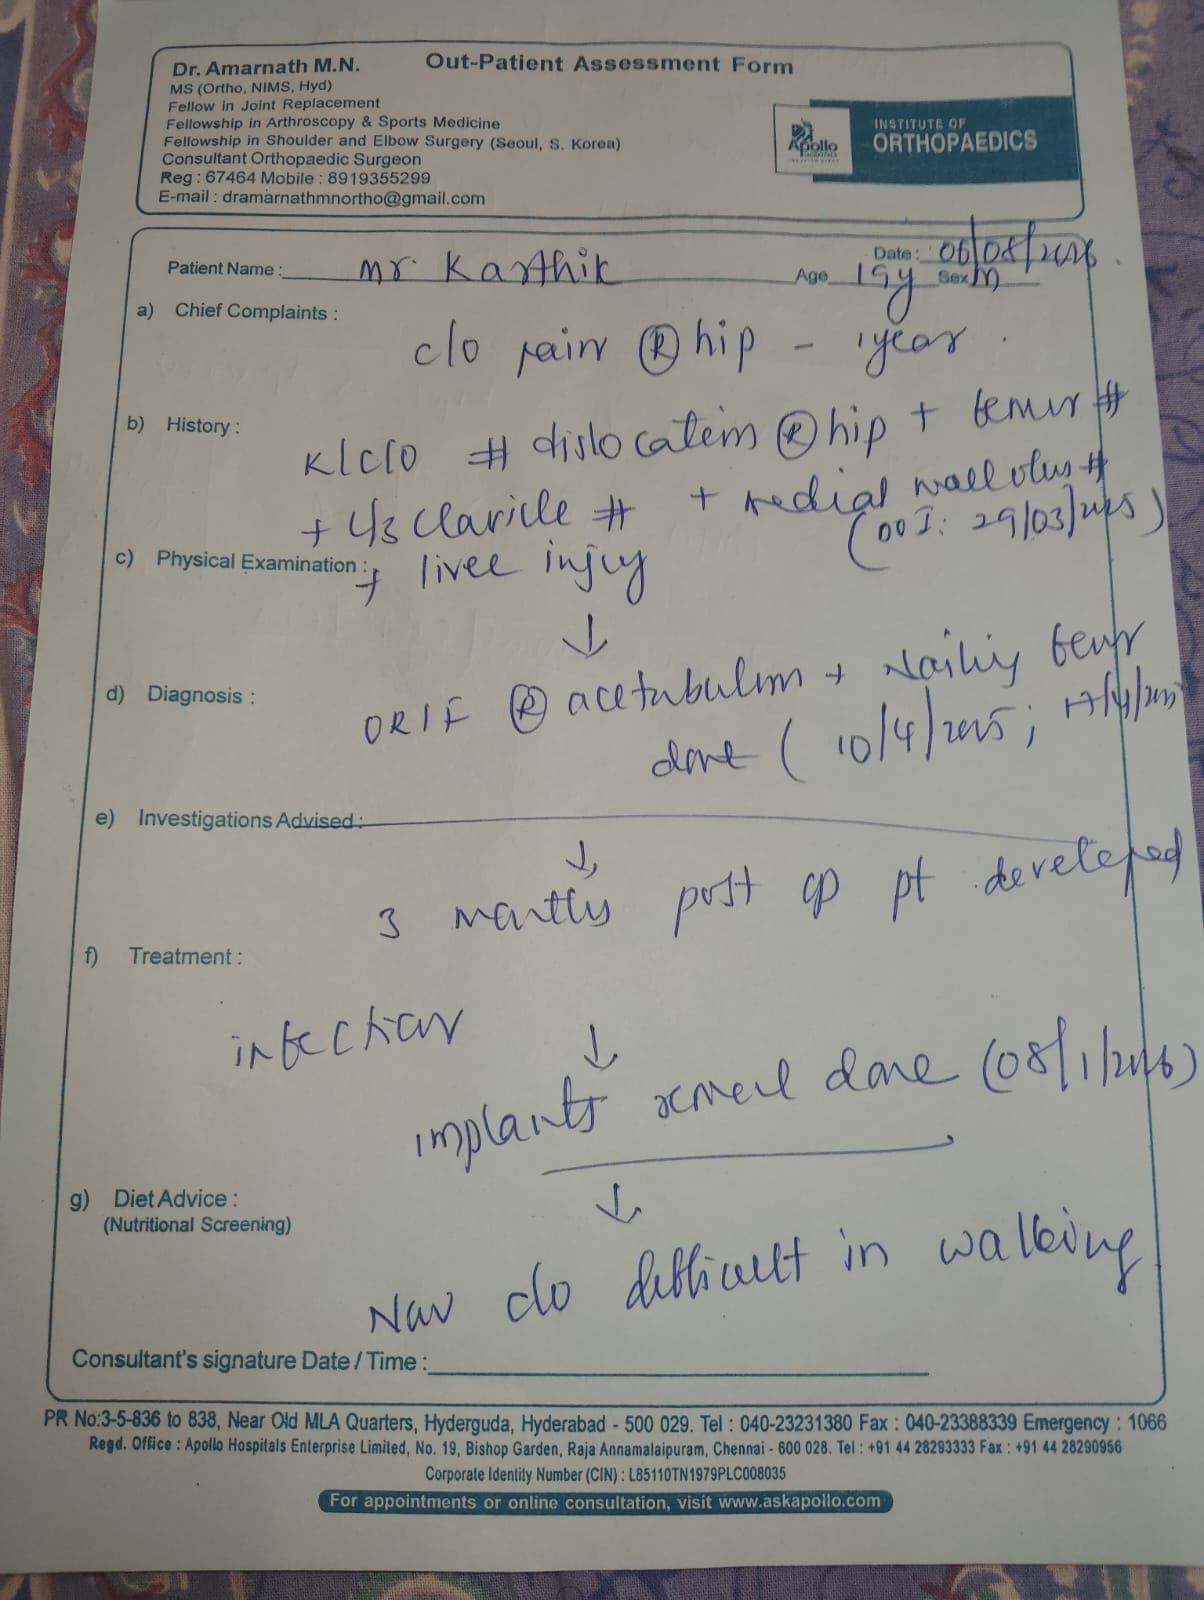 Dr. Amarnath M.N.
Out-Patient Assessment Form
MS (Ortho, NIMS, Hyd)
Fellow in Joint Replacement
Fellowship in Arthroscopy & Sports Medicine
Fellowship in Shoulder and Elbow Surgery (Seoul, S. Korea)
Consultant Orthopaedic Surgeon
Reg : 67464 Mobile : 8919355299
E-mail : dramarnathmnortho@gmail.com
Apollo
INSTITUTE OF
ORTHOPAEDICS
Date : 06/08/2026
Patient Name : Mr. Karthik Age 19y Sex M
a) Chief Complaints :
c/o pain (R) hip - 1 year
b) History :
K/C/O # dislocation (R) hip + femur #
+ clavicle # + medial malleolus #
(DOI: 29/03/2025)
c) Physical Examination : + liver injury
↓
d) Diagnosis :
ORIF (R) acetabulum + Nailing femur
done ( 10/4/2025 ; 17/4/2025
e) Investigations Advised :
↓
3 months post op pt developed
f) Treatment :
infection
↓
implants removal done (08/1/2026)
g) Diet Advice :
(Nutritional Screening)
↓
Now c/o difficult in walking
Consultant's signature Date / Time :
PR No:3-5-836 to 838, Near Old MLA Quarters, Hyderguda, Hyderabad - 500 029. Tel : 040-23231380 Fax : 040-23388339 Emergency : 1066
Regd. Office : Apollo Hospitals Enterprise Limited, No. 19, Bishop Garden, Raja Annamalaipuram, Chennai - 600 028. Tel : +91 44 28293333 Fax : +91 44 28290956
Corporate Identity Number (CIN) : L85110TN1979PLC008035
For appointments or online consultation, visit www.askapollo.com